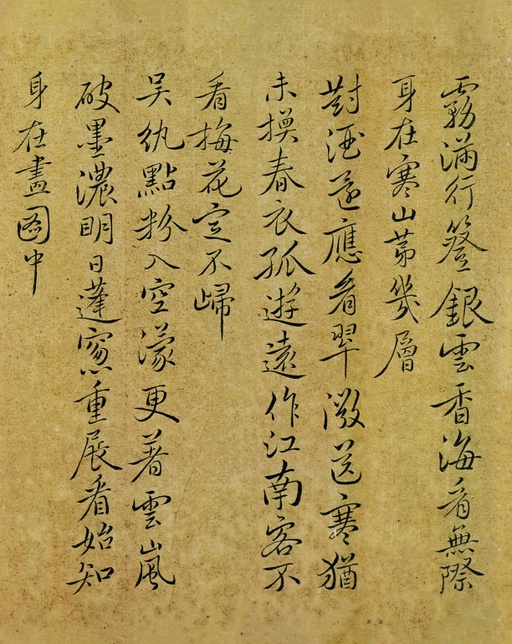 霧滿行簦銀雲香海看無際
身在寒山第幾層
對酒遥應看翠微送寒猶
未換春衣孤遊遠作江南客不
看梅花定不歸
吴紈點粉入空濛更著雲嵐
破墨濃明日蓬窻重展看始知
身在畫圖中